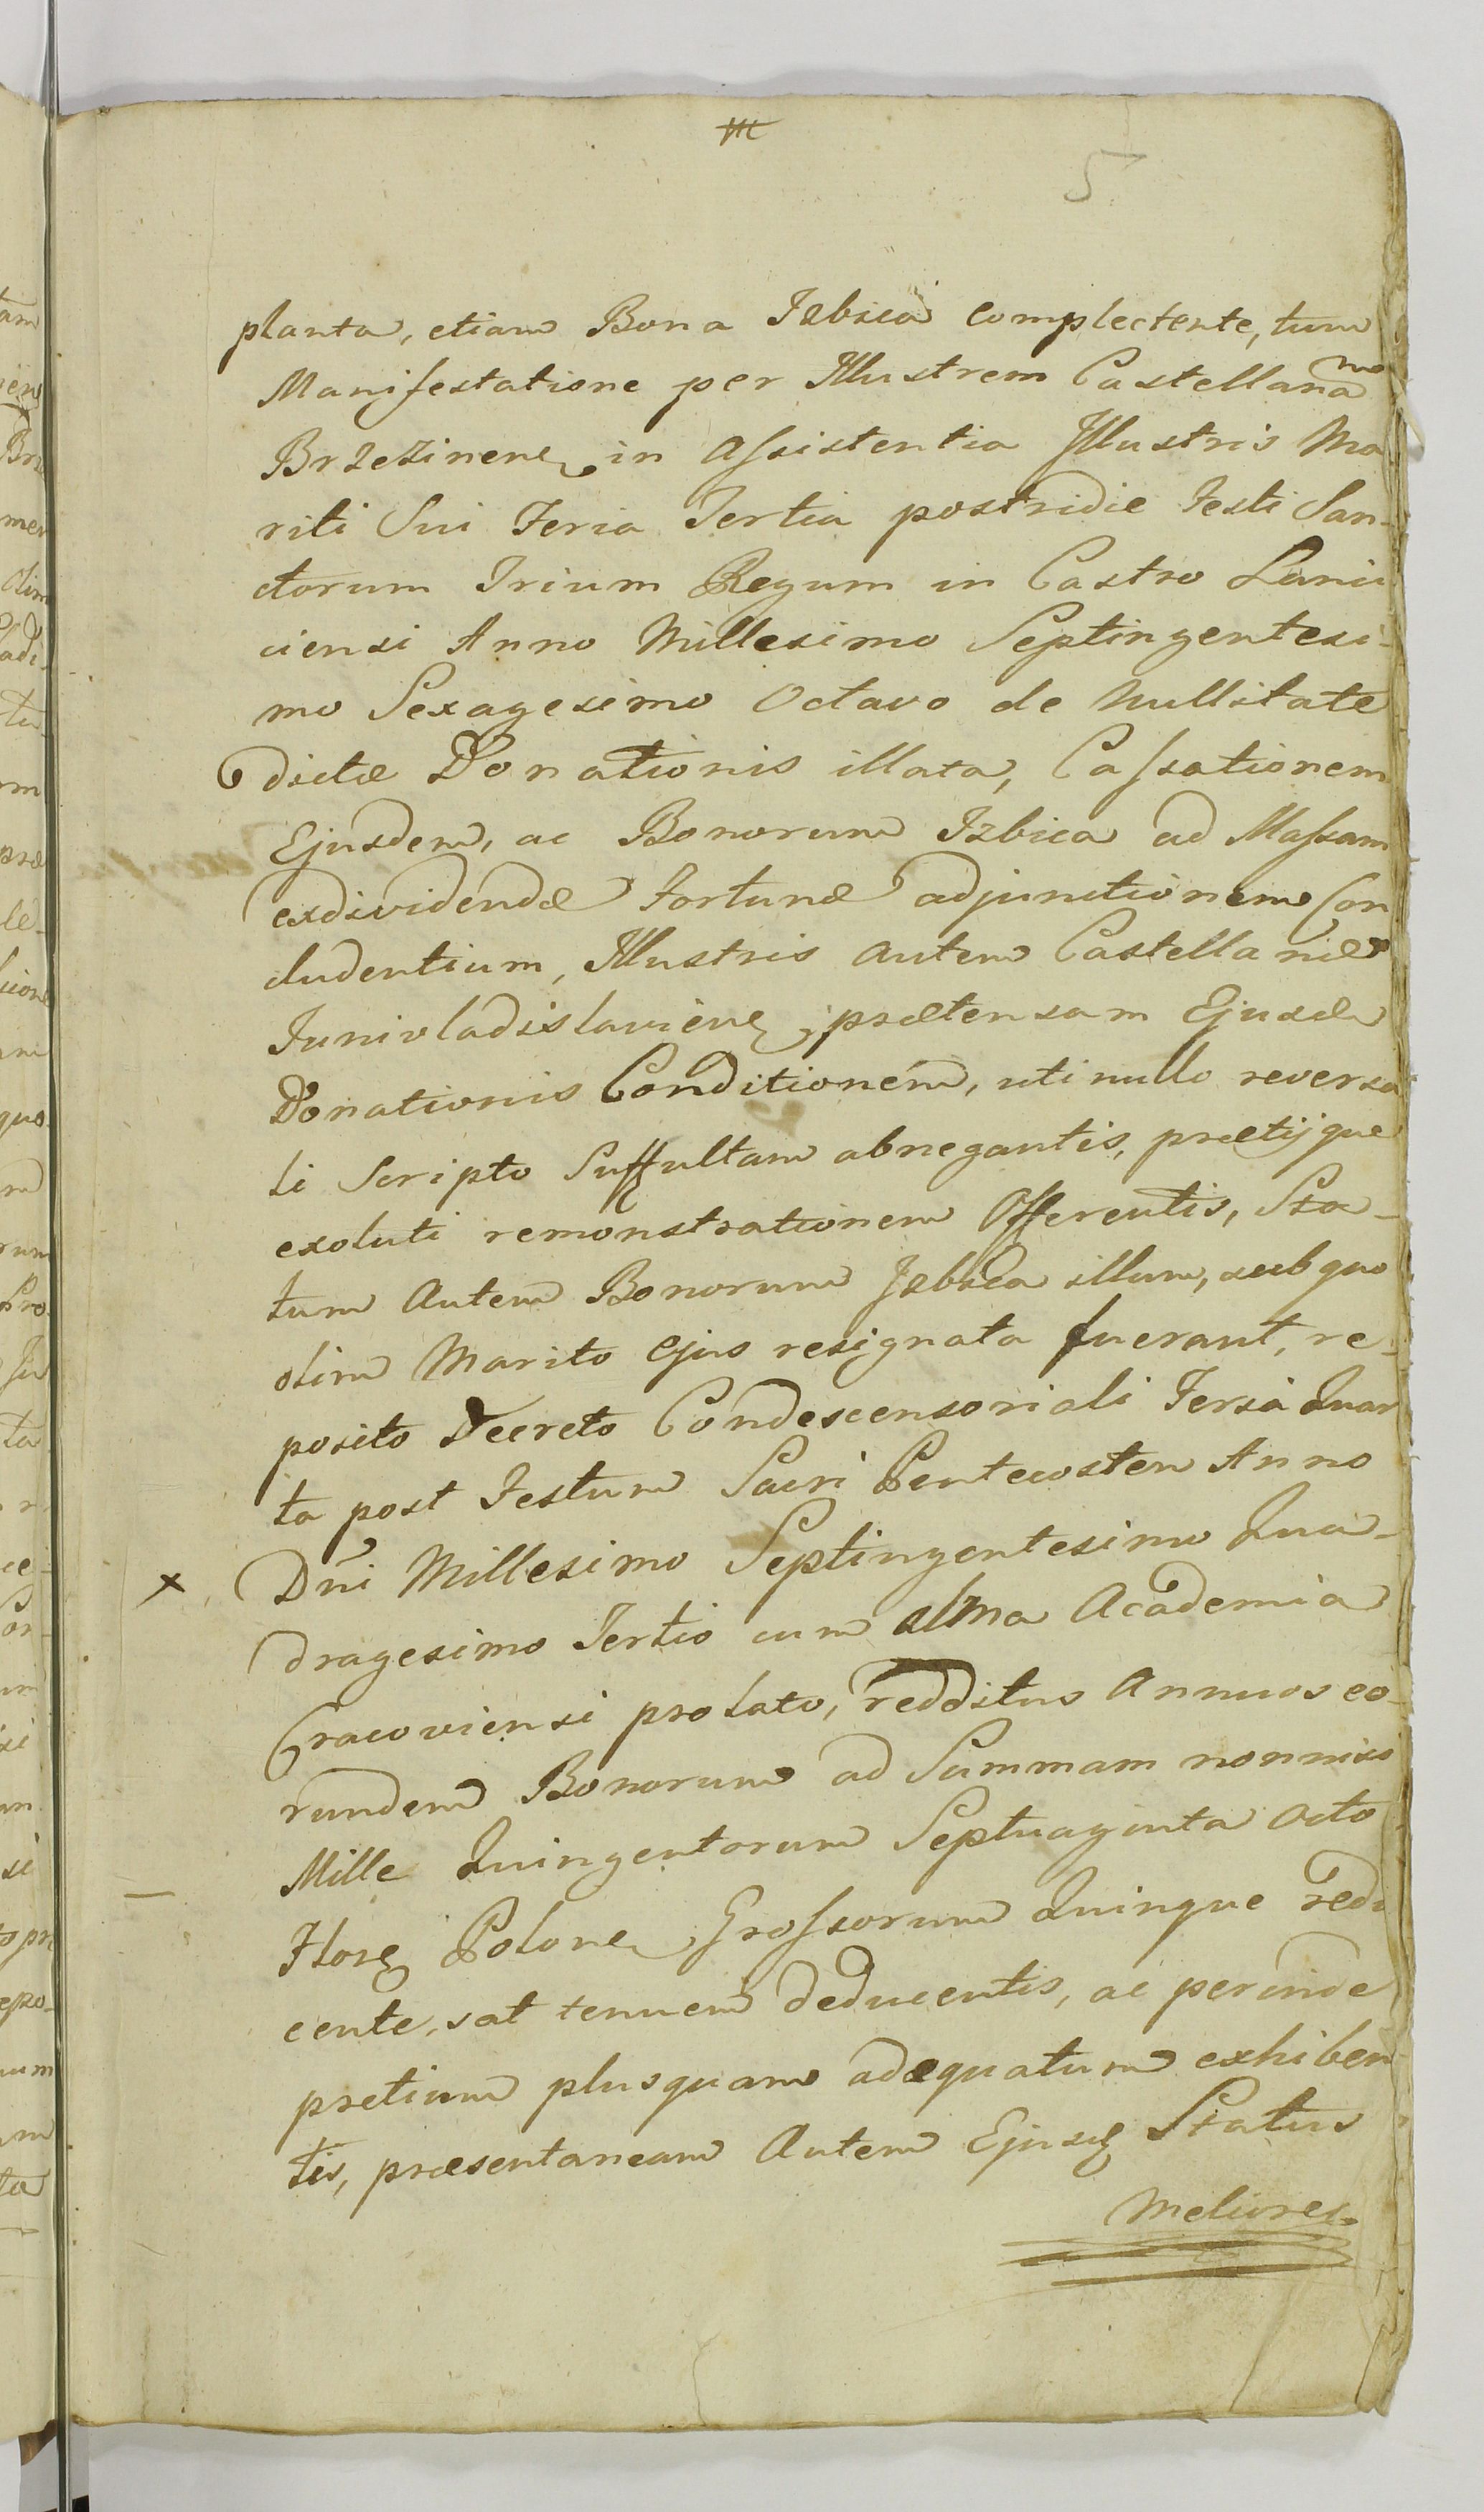 5
planta, etiam Bona Izbica complectente, tum
Manifestatione per Illustrem Castellanam
Brzezinen in Assistentia Illustris Ma
riti Sui Feria Tertia postridie Festi San-
ctorum Trium Regum in Castro Lanci
ciensi Anno Millesimo Septingentesi-
mo Sexagesimo Octavo de Nullitate
dictæ Donationis illata, Cassationem
Ejusdem, ac Bonorum Izbica ad Massam
exdividendæ Fortunæ adjunctionem Con
cludentium, Illustris autem Castellanæ
Junivladislavien prætensam Ejusd
Donationis Conditionem, uti nullo reversa
li Scripto Suffultam abnegantis, prætijque
exoluti remonstrationem Offerentis, Sta-
tum Autem Bonorum Izbica illum, sub quo
olim Marito Ejus resignata fuerant, re-
posito Decreto Condescensoriali Feria Quar
ta post Festum Sacri Pentecosten Anno
x Dni Millesimo Septingentesimo Qua-
dragesimo Tertio cum alma Academia
Cracoviensi prolato, redditus Annuos eo-
rundem Bonorum ad Summam nonnisi
Mille Quingentorum Septuaginta Octo
Flor Polon Grossorum Quinque redu
cente, sat tenuem deducentis, ac perinde
pretium plusquam adæquatum exhiben
tis, præsentaneam Autem Ejusd Status
Meliores